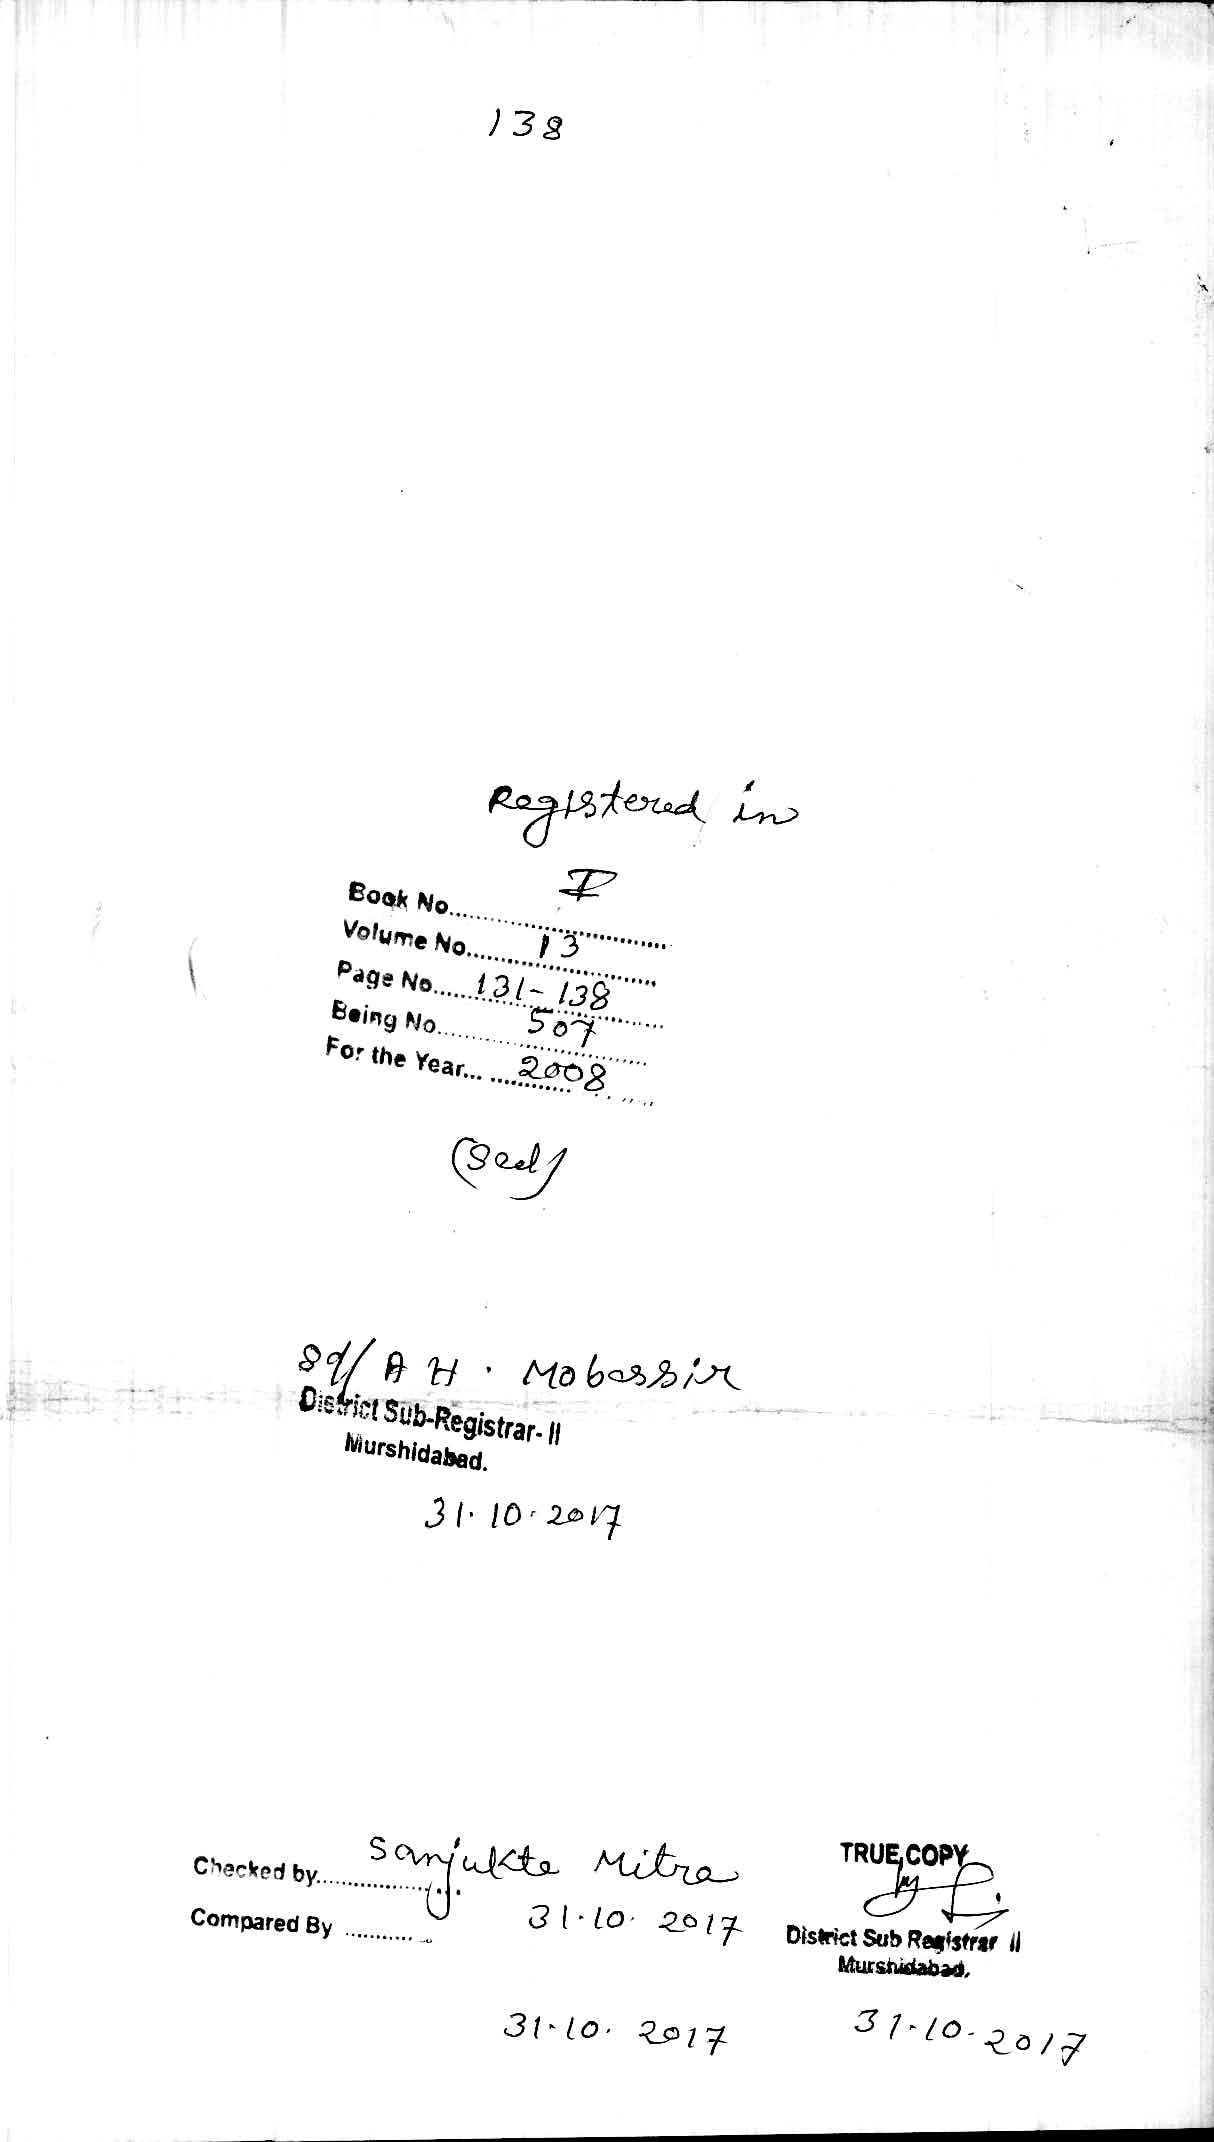 138
Registered in
Book No.................. I
Volume No........ 13
Page No...... 131-138
Being No......... 507
For the Year... ......... 2008
(Seal)
Sd/ A H . Mobassir
District Sub-Registrar- II
Murshidabad.
31.10.2017
Checked by................ Sanjukta Mitra
31.10.2017
Compared By ............
31.10.2017
TRUE COPY
District Sub Registrar II
Murshidabad.
31.10.2017